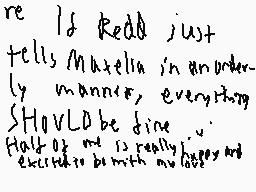 re If Redd just
tells Maxella in an order-
ly manner, everything
SHOULD be fine
Half of me is really happy and
excited to be with my love